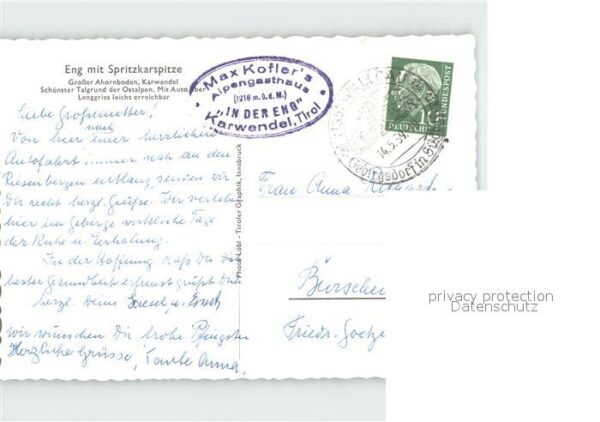 Eng mit Spritzkarspitze
Großer Ahornboden, Karwendel
Schönster Talgrund der Ostalpen. Mit Auto über
Lenggries leicht erreichbar
Max Kofler's
Alpengasthaus
(1216 m. ü. d. M.)
"IN DER ENG"
Karwendel, Tirol
DEUTSCHE BUNDESPOST
10
14.5.59
Liebe Großmutter!
Von hier einer herrlichen
nach
Autofahrt
nah an den
Riesenbergen entlang, senden wir
Dir recht herzl. Grüße. Wir verleben
hier im Gebirge wirkliche Tage
der Ruhe u. Erholung.
In der Hoffnung daß Du Dich
bester Gesundheit erfreust grüßt Dich
herzl. Deine
wir wünschen Dir frohe Pfingsten
Herzliche Grüsse, Tante Anna
Photo Löbl - Tiroler Graphik, Innsbruck
Frau Anna
Burschei
Friedr.-Goetze
privacy protection
Datenschutz